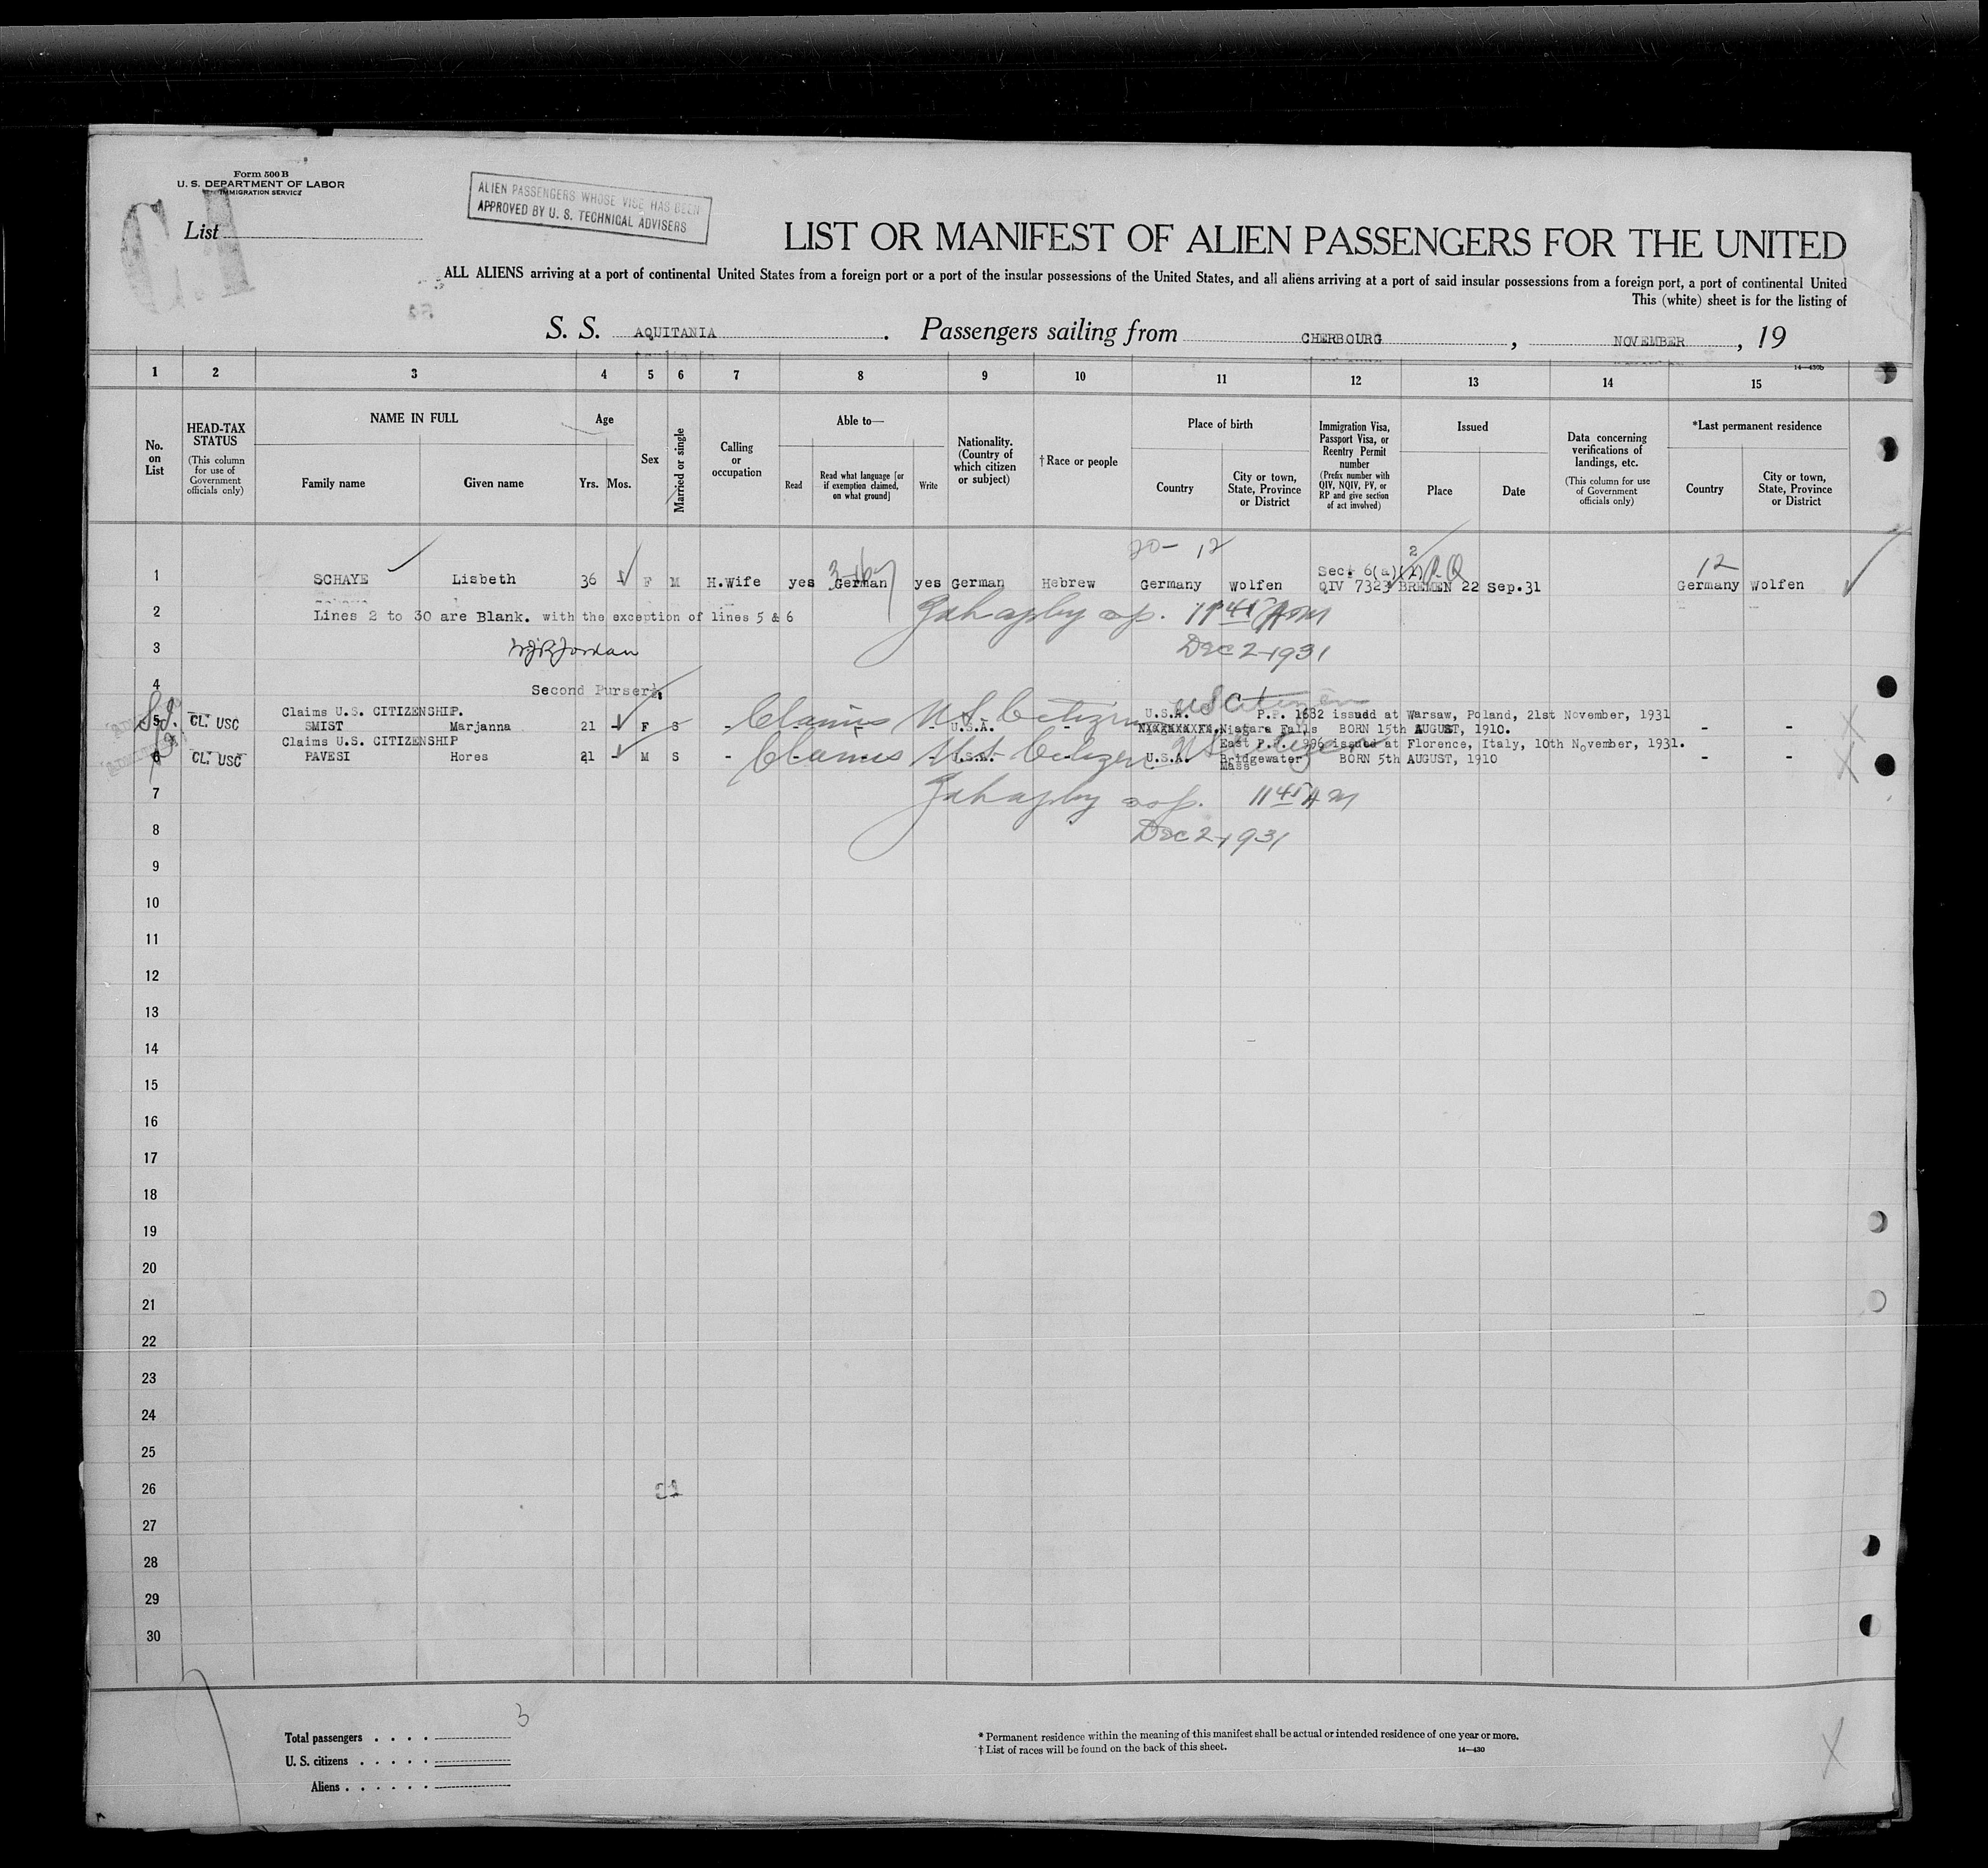 Form 500 B
U. S. DEPARTMENT OF LABOR
IMMIGRATION SERVICE
List
ALIEN PASSENGERS WHOSE VISE HAS BEEN
APPROVED BY U. S. TECHNICAL ADVISERS
LIST OR MANIFEST OF ALIEN PASSENGERS FOR THE UNITED
ALL ALIENS arriving at a port of continental United States from a foreign port or a port of the insular possessions of the United States, and all aliens arriving at a port of said insular possessions from a foreign port, a port of continental United
This (white) sheet is for the listing of
S. S. AQUITANIA. Passengers sailing from CHERBOURG, NOVEMBER, 19
14—430b
1 2 3 4 5 6 7 8 9 10 11 12 13 14 15
No. on List
HEAD-TAX STATUS
(This column for use of Government officials only)
NAME IN FULL
Family name
Given name
Age
Yrs. Mos.
Sex
Married or single
Calling or occupation
Able to—
Read
Read what language [or if exemption claimed, on what ground]
Write
Nationality. (Country of which citizen or subject)
† Race or people
Place of birth
Country
City or town, State, Province or District
Immigration Visa, Passport Visa, or Reentry Permit number
(Prefix number with QIV, NQIV, PV, or RP and give section of act involved)
Issued
Place
Date
Data concerning verifications of landings, etc.
(This column for use of Government officials only)
*Last permanent residence
Country
City or town, State, Province or District
20- 12 2 12
Sec. 6(a)(1)
1 SCHAYE Lisbeth 36 F M H.Wife yes German yes German Hebrew Germany Wolfen QIV 7323 BREMEN 22 Sep.31 Germany Wolfen
2 Lines 2 to 30 are Blank. with the exception of lines 5 & 6 11 45 AM
3 WJR Jordan Dec 2-1931
4 Second Purser.
US Citizen
Claims U.S. CITIZENSHIP. U.S.A. P.P. 1682 issued at Warsaw, Poland, 21st November, 1931
5 CL. USC SMIST Marjanna 21 - F S - Claims U S Citizen U.S.A. - Niagara Falls BORN 15th AUGUST, 1910. - -
Claims U.S. CITIZENSHIP East P.P. 1996 issued at Florence, Italy, 10th November, 1931.
6 CL. USC PAVESI Hores 21 - M S - Claims U S Citizen U.S.A. U.S.A. Bridgewater BORN 5th AUGUST, 1910 - -
Mass
US Citizen
7 11 45 AM
8 Dec 2-1931
9
10
11
12
13
14
15
16
17
18
19
20
21
22
23
24
25
26
27
28
29
30
Total passengers 3
U. S. citizens
Aliens
* Permanent residence within the meaning of this manifest shall be actual or intended residence of one year or more.
† List of races will be found on the back of this sheet.
14—430